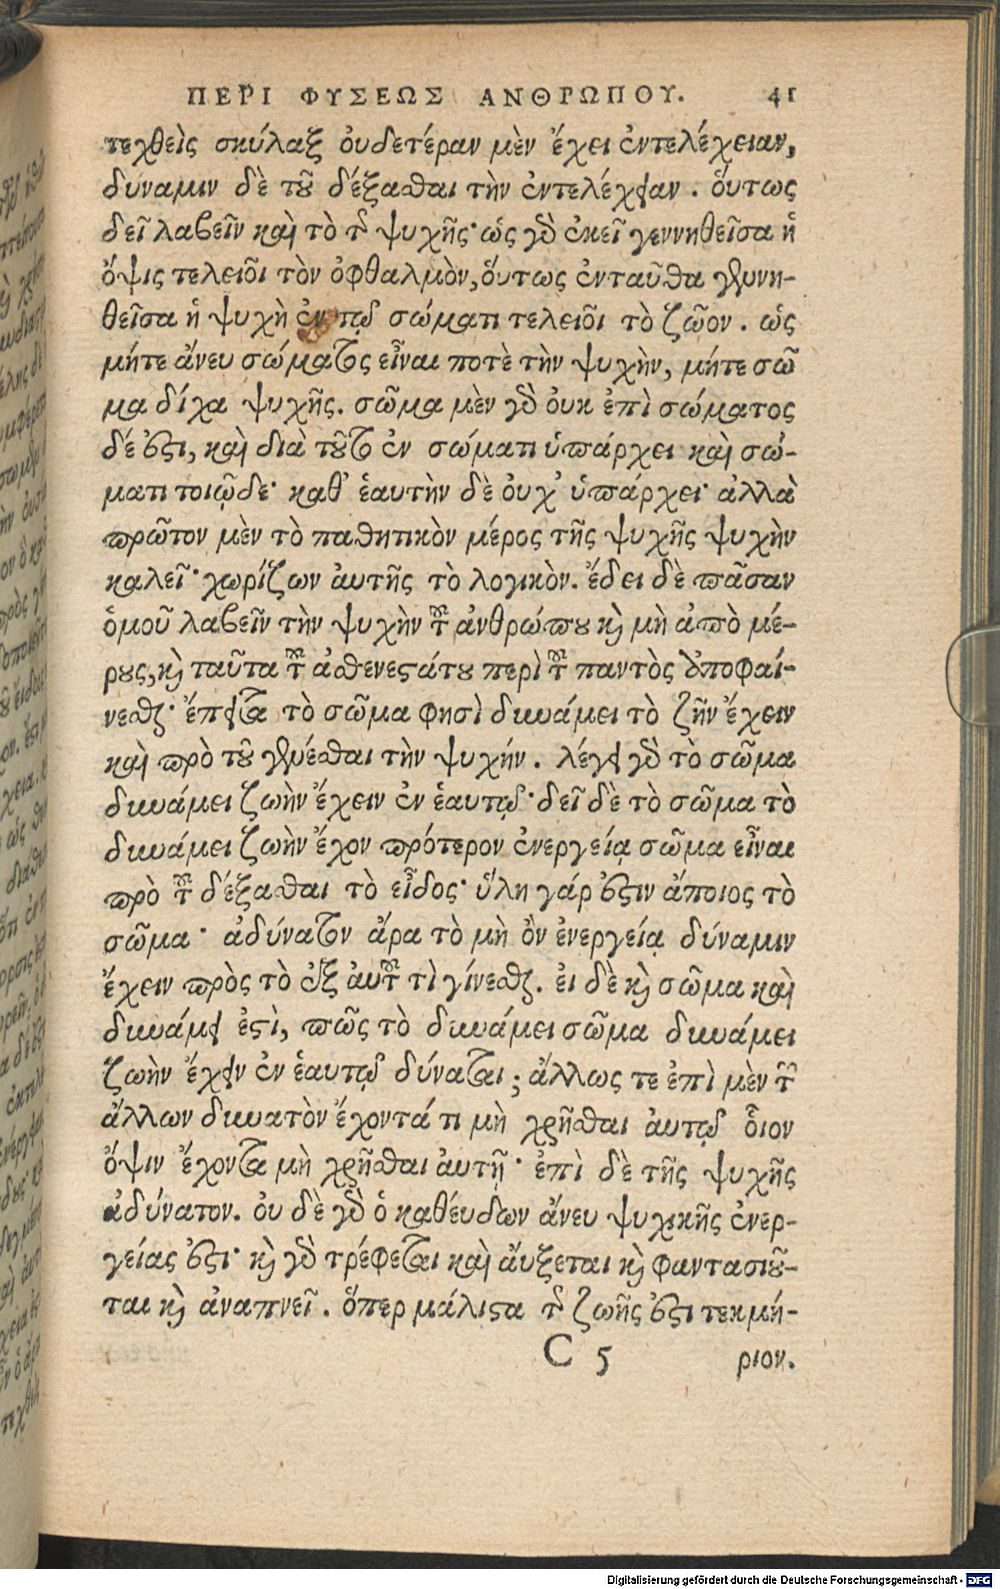 ΠΕΡΙ ΦΥΣΕΩΣ ΑΝΘΡΩΠΟΥ. 41
τεχθεὶς σκύλαξ ὀυδετέραν μὲν ἔχει ἐντελέχειαν,
δύναμιν δὲ τοῦ δέξασθαι τὴν ἐντελέχειαν . ὅυτως
δεῖ λαβεῖν καὶ τὸ τῆς ψυχῆς· ὡς γὸ ἐκεῖ γεννηθεῖσα ἡ
ὄψις τελειοῖ τὸν ὀφθαλμὸν, ὅυτως ἐνταῦθα γεννη-
θεῖσα ἡ ψυχὴ ἐν τῷ σώματι τελειοῖ τὸ ζῶον . ὡς
μήτε ἄνευ σώματος εἶναι ποτὲ τὴν ψυχὴν, μήτε σῶ
μα δίχα ψυχῆς. σῶμα μὲν γὸ ὀυκ ἐπὶ σώματος
δέ ἐστι, καὶ διὰ τοῦτο ἐν σώματι ὑπάρχει καὶ σώ-
ματι τοιῷδε· καθ' ἑαυτὴν δὲ ὀυχ' ὑπάρχει· ἀλλὰ
πρῶτον μὲν τὸ παθητικὸν μέρος τῆς ψυχῆς ψυχὴν
καλεῖ· χωρίζων ἀυτῆς τὸ λογικὸν. ἔδει δὲ πᾶσαν
ὁμοῦ λαβεῖν τὴν ψυχὴν τοῦ ἀνθρώπου καὶ μὴ ἀπὸ μέ-
ρους, καὶ ταῦτα τοῦ ἀσθενεστάτου περὶ τοῦ παντὸς ἀποφαί-
νεσθαι· ἔπειτα τὸ σῶμα φησὶ δυνάμει τὸ ζῆν ἔχειν
καὶ πρὸ τοῦ γενέσθαι τὴν ψυχήν . λέγει γὸ τὸ σῶμα
δυνάμει ζωὴν ἔχειν ἐν ἑαυτῷ· δεῖ δὲ τὸ σῶμα τὸ
δυνάμει ζωὴν ἔχον πρότερον ἐνεργείᾳ σῶμα εἶναι
πρὸ τοῦ δέξασθαι τὸ εἶδος· ὕλη γάρ ἐστιν ἄποιος τὸ
σῶμα · ἀδύνατον ἄρα τὸ μὴ ὂν ἐνεργείᾳ δύναμιν
ἔχειν πρὸς τὸ ἐξ ἀυτοῦ τὶ γίνεσθαι. ἐι δὲ καὶ σῶμα καὶ
δυνάμει ἐστὶ, πῶς τὸ δυνάμει σῶμα δυνάμει
ζωὴν ἔχειν ἐν ἑαυτῷ δύναται ; ἄλλως τε ἐπὶ μὲν τῶν
ἄλλων δυνατὸν ἔχοντά τι μὴ χρῆσθαι ἀυτῷ ὅιον
ὄψιν ἔχοντα μὴ χρῆσθαι ἀυτῇ · ἐπὶ δὲ τῆς ψυχῆς
ἀδύνατον. ὀυ δὲ γὸ ὁ καθέυδων ἄνευ ψυχικῆς ἐνερ-
γείας ἐστι· καὶ γὸ τρέφεται καὶ ἄυξεται καὶ φαντασιοῦ-
ται καὶ ἀναπνεῖ . ὅπερ μάλιστα τῆς ζωῆς ἐστι τεκμή-
C 5 ριον.
Digitalisierung gefördert durch die Deutsche Forschungsgemeinschaft - DFG